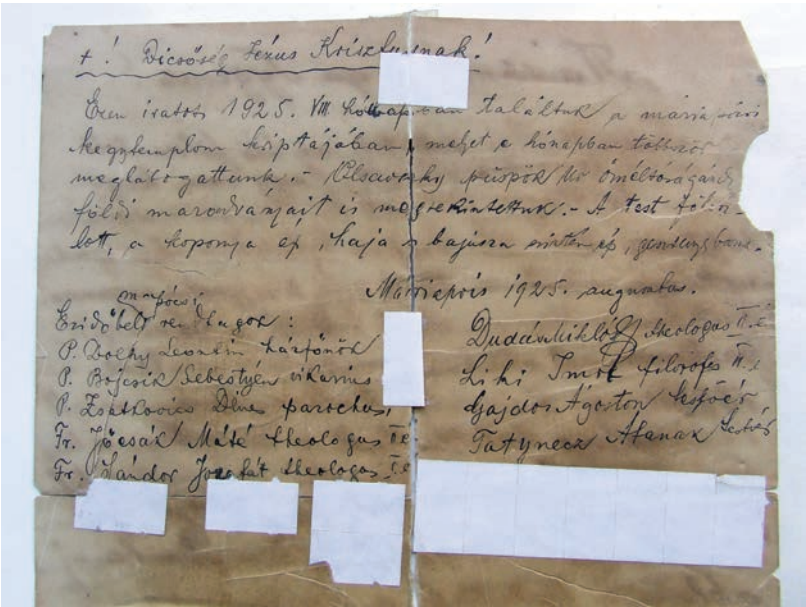 +! Dicsőség Jézus Krisztusnak!
Ezen iratot 1925. VIII. hónapban találtuk a máriapócsi
kegytemplom kriptájában, melyet e hónapban többször
meglátogattunk. - Olsavszky püspök Úr őméltóságának
földi maradványait is megtekintettük. - A test
a koponya ép, haja s bajusza szintén ép,
Máriapócs 1925. augusztus.
m-pócsi
Ezidőbeli rendtagok:
P. Dolhy Leontin házfőnök
P. Bojcsik Sebestyén vikárius
P. Zsatkovics Dénes parochus,
Fr. Jócsák Máté theologus I. é.
Fr. Sándor Jozafát theologus I. é.
Dudás Miklós theologus II. é.
Liki Imre filozofus II. é.
Gajdos Ágoston
Tatynecz Atanáz testvér